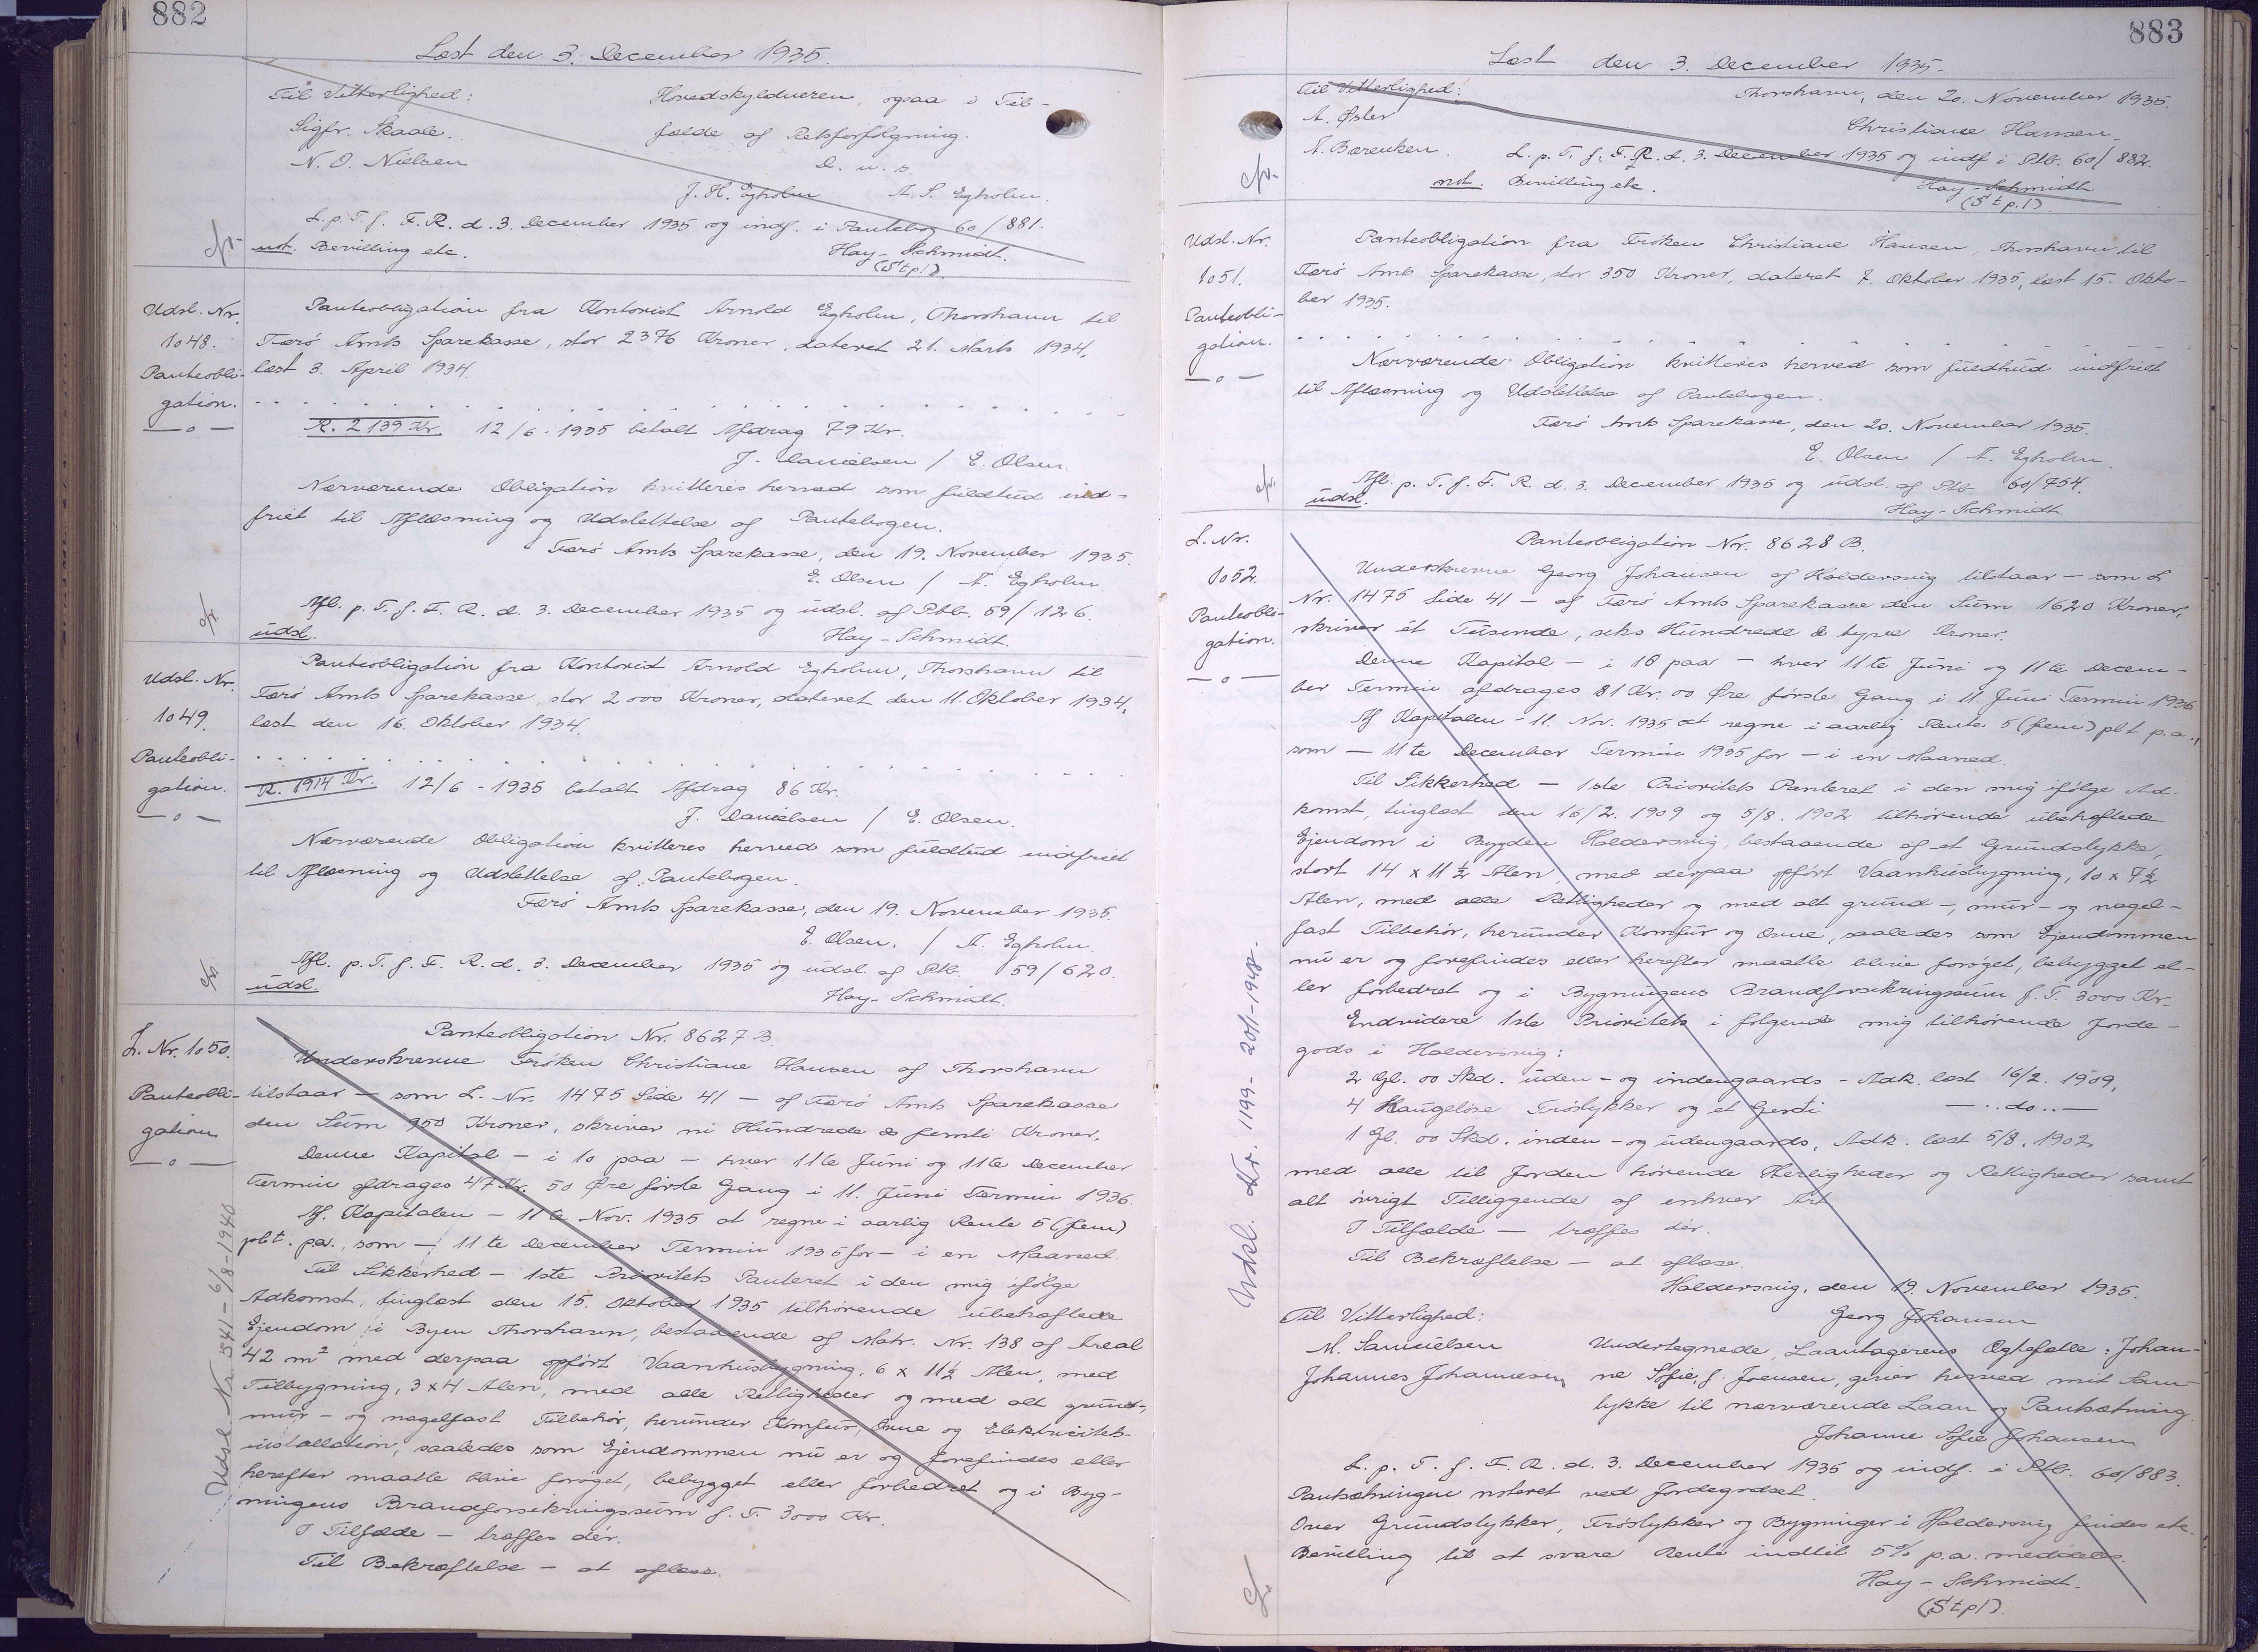 882
Læst den 3. December 1935.
Til Vitterlighed:
Sigfr. Skaale.
N. O. Nielsen
Hovedskyldneren, ogsaa i Til-
fælde af Retsforfølgning.
D. u. s.
J. H. Egholm A. S. Egholm.
L. p. T. f. F. R. d. 3. December 1935 og indf. i Pantebog 60/881.
not. Bevilling etc.
Hay-Schmidt.
(Stpl).
Udsl. Nr.
1048.
Panteobli-
gation.
—o—
Panteobligation fra Kontorist Arnold Egholm, Thorshavn til
Færö Amts Sparekasse, stor 2376 Kroner, dateret 21. Marts 1934,
læst 3. April 1934.
R. 2139 Kr. 12/6-1935 betalt Afdrag 79 Kr.
J. Danielsen / E. Olsen.
Nærværende Obligation kvitteres herved som fuldtud ind-
friet til Aflæsning og Udslettelse af Pantebogen.
Færö Amts Sparekasse, den 19. November 1935.
E. Olsen / A. Egholm
Afl. p. T. f. F. R. d. 3. December 1935 og udsl. af Ptb. 59/126.
udsl.
Hay-Schmidt.
Udsl. Nr.
1049.
Panteobli-
gation.
—o—
Panteobligation fra Kontorist Arnold Egholm, Thorshavn til
Færö Amts Sparekasse, stor 2000 Kroner, dateret den 11. Oktober 1934,
læst den 16. Oktober 1934.
R. 1914 Kr. 12/6-1935 betalt Afdrag 86 Kr.
J. Danielsen / E. Olsen.
Nærværende Obligation kvitteres herved som fuldtud indfriet
til Aflæsning og Udslettelse af Pantebogen.
Færö Amts Sparekasse, den 19. November 1935.
E. Olsen. / A. Egholm.
Afl. p. T. f. F. R. d. 3. December 1935 og udsl. af Ptb. 59/620.
udsl.
Hay-Schmidt.
L. Nr. 1050.
Panteobli-
gation
—o—
Udsl. Nr. 541-6/8-1940
Panteobligation Nr. 8627 B.
Underskrevne Fröken Christiane Hansen af Thorshavn
tilstaar — som L. Nr. 1475 Side 41 — af Færö Amts Sparekasse
den Sum 950 Kroner, skriver ni Hundrede & femti Kroner.
Denne Kapital — i 10 paa — hver 11te Juni og 11te December
Termin afdrages 47 Kr. 50 Øre første Gang i 11. Juni Termin 1936.
Af Kapitalen — 11te Nov. 1935 at regne i aarlig Rente 5 (fem)
pbt. p.a., som — 11te December Termin 1935 for — i en Maaned
Til Sikkerhed — 1ste Prioritets Panteret i den mig ifölge
Adkomst, tinglæst den 15. Oktober 1935 tilhörende ubehæftede
Ejendom i Byen Thorshavn, bestaaende af Matr. Nr. 138 af Areal
42 m² med derpaa opfört Vaanhusbygning, 6 x 11½ Alen, med
Tilbygning, 3x4 Alen, med alle Rettigheder og med alt grund-,
mur- og nagelfast Tilbehör, herunder Komfur, Ovne og Elektricitets-
installation, saaledes som Ejendommen nu er og forefindes eller
herefter maatte blive forøget, bebygget eller forbedret og i Byg-
ningens Brandforsikringssum f. T. 3000 Kr.
I Tilfælde — træffes dér.
Til Bekræftelse — at aflæse.
883
Læst den 3. December 1935.
Til Vitterlighed:
A. Øster
A. Bærentsen.
Thorshavn, den 20. November 1935.
Christiane Hansen.
L. p. T. f. F. R. d. 3. December 1935 og indf i Ptb. 60/882.
not. Bevilling etc.
Hay-Schmidt
(Stpl).
Udsl. Nr.
1051.
Panteobli-
gation.
—o—
Panteobligation fra Fröken Christiane Hansen, Thorshavn, til
Færö Amts Sparekasse, stor 350 Kroner, dateret 7. Oktober 1935, læst 15. Okto-
ber 1935.
Nærværende Obligation kvitteres herved som fuldtud indfriet
til Aflæsning og Udslettelse af Pantebogen.
Færö Amts Sparekasse, den 20. November 1935.
E. Olsen / A. Egholm.
Afl. p. T. f. F. R. d. 3. December 1935 og udsl. af Ptb. 60/754.
udsl.
Hay-Schmidt
L. Nr.
1052.
Panteobli-
gation.
—o—
Udsl. Nr. 1199-
Panteobligation Nr. 8628 B.
Underskrevne Georg Johansen af Haldersvig tilstaar — som L.
Nr. 1475 Side 41 — af Færö Amts Sparekasse den Sum 1620 Kroner,
skriver ét Tusende, seks Hundrede & tyve Kroner.
Denne Kapital — i 10 paa — hver 11te Juni og 11te Decem-
ber Termin afdrages 81 Kr. 00 Øre første Gang i 11. Juni Termin 1936
Af Kapitalen - 11. Nov. 1935 at regne i aarlig Rente 5 (fem) pbt p.a.,
som — 11te December Termin 1935 for — i en Maaned.
Til Sikkerhed — 1ste Prioritets Panteret i den mig ifölge Ad-
komst, tinglæst den 16/2. 1909 og 5/8. 1902 tilhörende ubehæftede
Ejendom i Bygden Haldersvig, bestaaende af et Grundstykke,
stort 14 x 11½ Alen, med derpaa opfört Vaanhusbygning, 10 x 7½
Alen, med alle Rettigheder og med alt grund-, mur- og nagel-
fast Tilbehör, herunder Komfur og Ovne, saaledes som Ejendommen
nu er og forefindes eller herefter maatte blive forøget, bebygget el-
ler forbedret og i Bygningens Brandforsikringssum f. T. 3000 Kr.
Endvidere 1ste Prioritets i følgende mig tilhörende Jorde-
gods i Haldersvig:
2 Gl. 00 Skd. uden- og indengaards - Adk. læst 16/2. 1909,
4 Haugeløse Tröstykker og et Gerdi — ..do.. —
1 Gl. 00 Skd. inden- og udengaards, Adk. læst 5/8. 1902
med alle til Jorden hørende Herligheder og Rettigheder samt
alt övrigt Tilliggende af enhver Art
I Tilfælde — træffes dér.
Til Bekræftelse — at aflæse.
Haldersvig, den 19. November 1935.
Georg Johansen
Til Vitterlighed:
M. Samuelsen
Johannes Johannesen
Undertegnede, Laantagerens Ægtefælle: Johan-
ne Sofie, f. Joensen, giver herved mit Sam-
tykke til nærværende Laan og Pantsætning.
Johanne Sofie Johansen
L. p. T. f. F. R. d. 3. December 1935 og indf. i Ptb. 60/883.
Pantsætningen noteret ved Jordegodset.
Over Grundstykker, Tröstykker og Bygninger i Haldersvig findes etc.
Bevilling til at svare Rente indtil 5% p.a. meddeles.
Hay-Schmidt.
(Stpl).